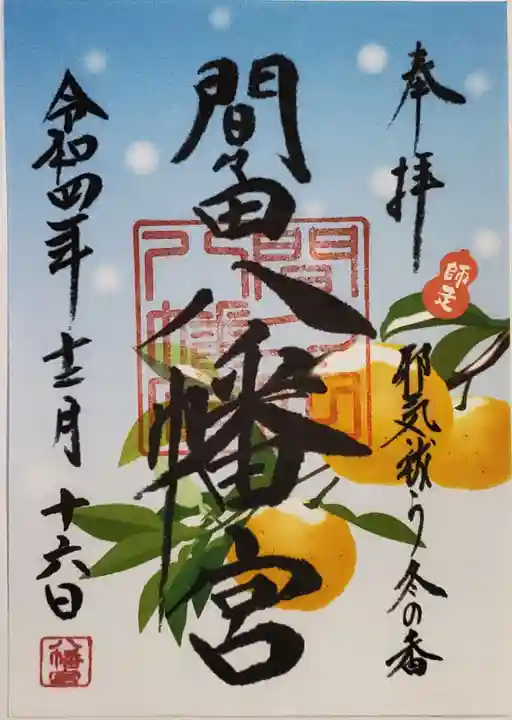 奉拝
師走
邪気祓う冬の香
間々田八幡宮
令和四年十二月十六日
八幡宮